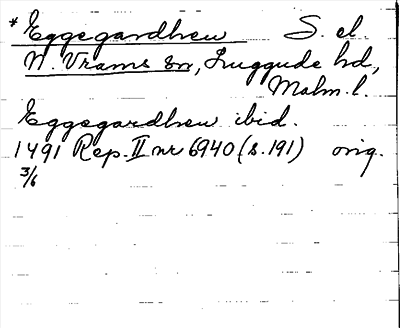 * Eggegardhren S. el.
N. Vrams sn, Luggude hd,
Malm. l.
Eggegardhren ibid.
1491 Rep. II nr 6940 (s. 191) orig.
3/6